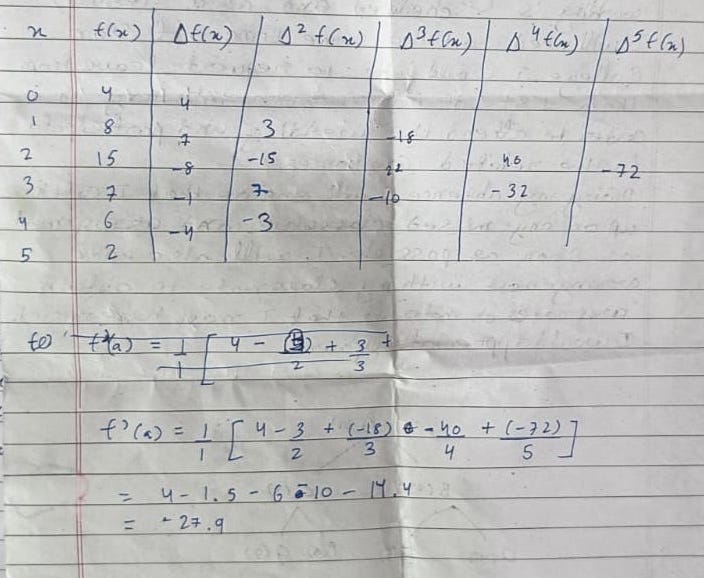 x f(x) Δf(x) Δ² f(x) Δ³f(x) Δ⁴f(x) Δ⁵f(x)
0 4
4
1 8 3
7 -18
2 15 -15 40
-8 22 -72
3 7 7 -32
-1 -10
4 6 -3
-4
5 2
f'(a) = 1/1 [ 4 - 3/2 + (-18)/3 - 40/4 + (-72)/5 ]
= 4 - 1.5 - 6 - 10 - 14.4
= - 27.9